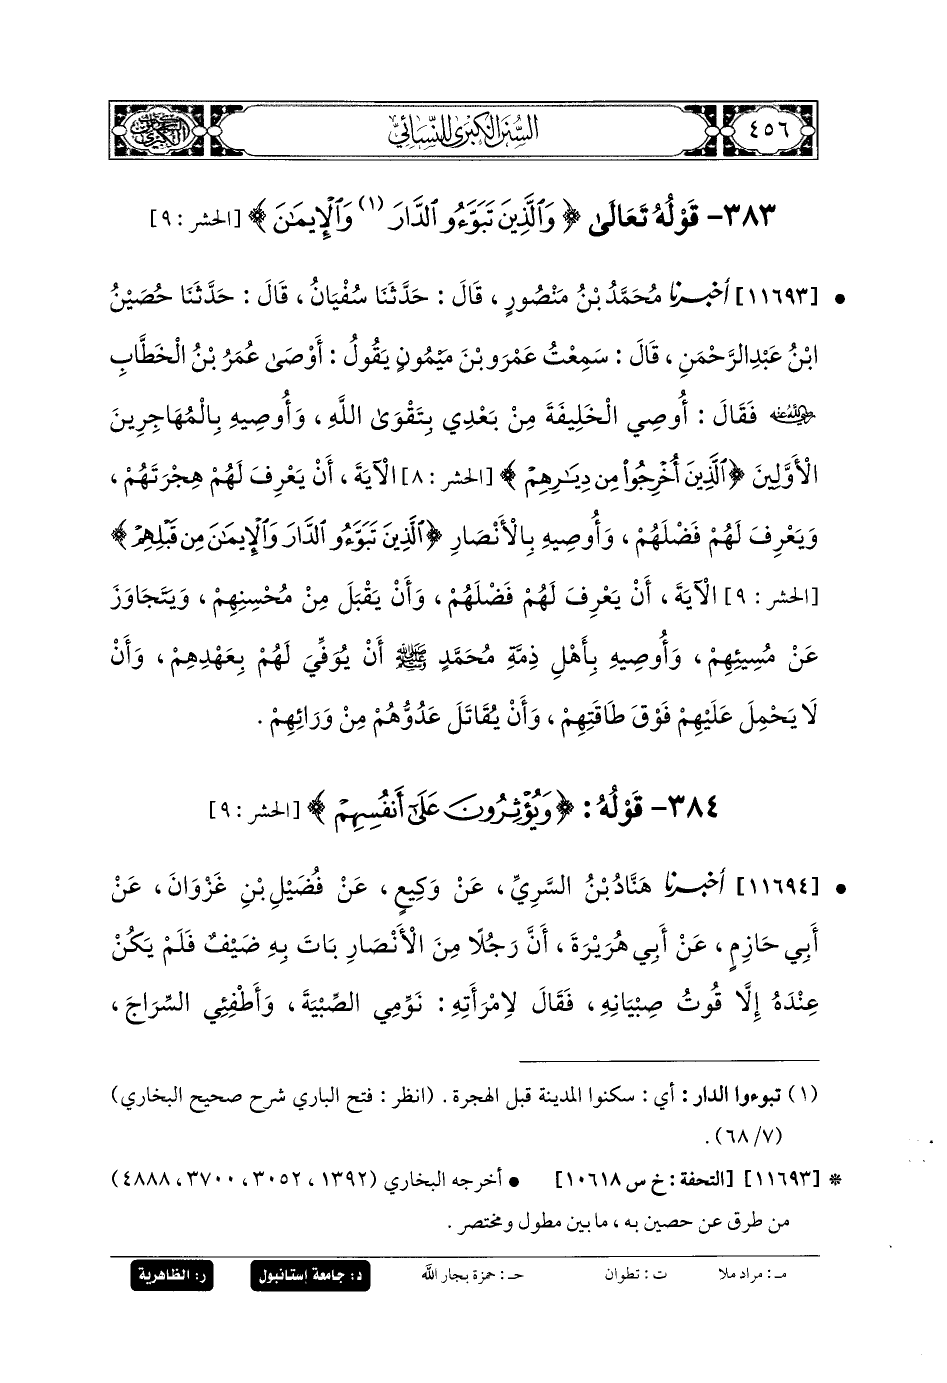 ٤٥٦
السنن الكبرى للنسائي
٣٨٣- قَوْلُهُ تَعَالَىٰ ﴿ وَٱلَّذِينَ تَبَوَّءُو ٱلدَّارَ (١) وَٱلْإِيمَٰنَ ﴾ [الحشر : ٩]
• [١١٦٩٣] أخبرنا مُحَمَّدُ بْنُ مَنْصُورٍ ، قَالَ : حَدَّثَنَا سُفْيَانُ ، قَالَ : حَدَّثَنَا حُصَيْنُ
ابْنُ عَبْدِالرَّحْمَنِ ، قَالَ : سَمِعْتُ عَمْرَو بْنَ مَيْمُونٍ يَقُولُ : أَوْصَىٰ عُمَرُ بْنُ الْخَطَّابِ
رضي الله عنه فَقَالَ : أُوصِي الْخَلِيفَةَ مِنْ بَعْدِي بِتَقْوَىٰ اللَّهِ ، وَأُوصِيهِ بِالْمُهَاجِرِينَ
الْأَوَّلِينَ ﴿ٱلَّذِينَ أُخْرِجُواْ مِن دِيَٰرِهِمْ ﴾ [الحشر : ٨] الْآيَةَ ، أَنْ يَعْرِفَ لَهُمْ هِجْرَتَهُمْ ،
وَيَعْرِفَ لَهُمْ فَضْلَهُمْ ، وَأُوصِيهِ بِالْأَنْصَارِ ﴿ٱلَّذِينَ تَبَوَّءُو ٱلدَّارَ وَٱلْإِيمَٰنَ مِن قَبْلِهِمْ﴾
[الحشر : ٩] الْآيَةَ ، أَنْ يَعْرِفَ لَهُمْ فَضْلَهُمْ ، وَأَنْ يَقْبَلَ مِنْ مُحْسِنِهِمْ ، وَيَتَجَاوَزَ
عَنْ مُسِيئِهِمْ ، وَأُوصِيهِ بِأَهْلِ ذِمَّةِ مُحَمَّدٍ ﷺ أَنْ يُوَفِّيَ لَهُمْ بِعَهْدِهِمْ ، وَأَنْ
لَا يَحْمِلَ عَلَيْهِمْ فَوْقَ طَاقَتِهِمْ ، وَأَنْ يُقَاتَلَ عَدُوُّهُمْ مِنْ وَرَائِهِمْ .
٣٨٤- قَوْلُهُ : ﴿ وَيُؤْثِرُونَ عَلَىٰٓ أَنفُسِهِمْ ﴾ [الحشر : ٩]
• [١١٦٩٤] أخبرنا هَنَّادُ بْنُ السَّرِيِّ ، عَنْ وَكِيعٍ ، عَنْ فُضَيْلِ بْنِ غَزْوَانَ ، عَنْ
أَبِي حَازِمٍ ، عَنْ أَبِي هُرَيْرَةَ ، أَنَّ رَجُلًا مِنَ الْأَنْصَارِ بَاتَ بِهِ ضَيْفٌ فَلَمْ يَكُنْ
عِنْدَهُ إِلَّا قُوتُ صِبْيَانِهِ ، فَقَالَ لِامْرَأَتِهِ : نَوِّمِي الصِّبْيَةَ ، وَأَطْفِئِي السِّرَاجَ ،
(١) تبوءوا الدار : أي : سكنوا المدينة قبل الهجرة . (انظر : فتح الباري شرح صحيح البخاري)
(٦٨/٧) .
* [١١٦٩٣] [التحفة : خ س ١٠٦١٨] • أخرجه البخاري (١٣٩٢ ، ٣٠٥٢ ، ٣٧٠٠ ، ٤٨٨٨)
من طرق عن حصين به ، ما بين مطول ومختصر .
مـ : مراد ملا ت : تطوان حـ : حمزة بجار اللَّه د : جامعة إستانبول ر : الظاهرية